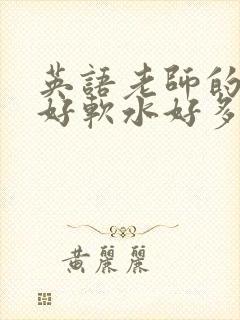 英語老師的
好軟水好多
黄麗麗